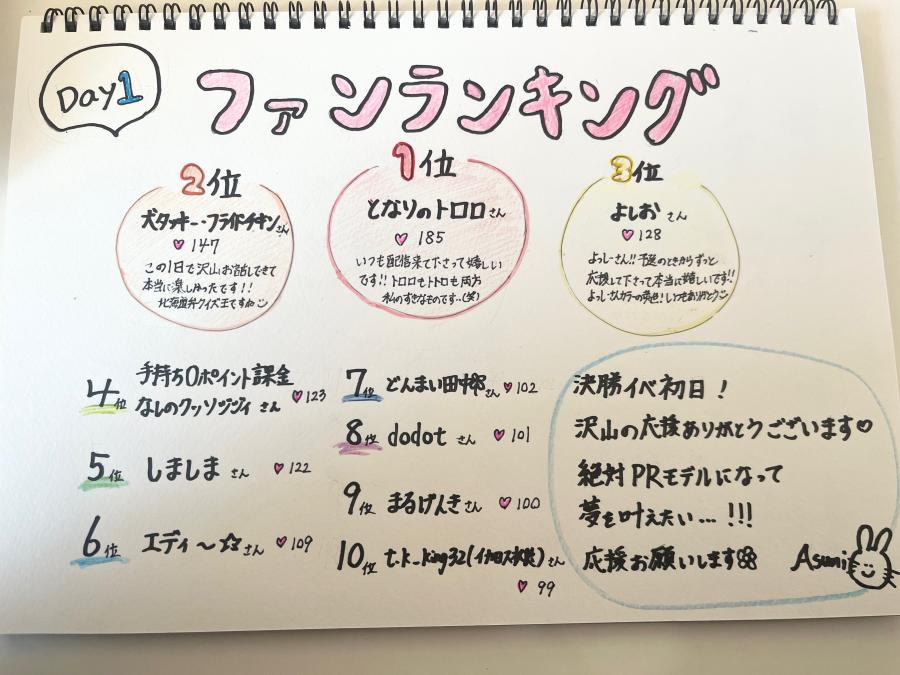 Day1
ファンランキング
1位
となりのトロロさん
♡ 185
いつも配信来て下さって嬉しい
です!! トロロもトロも両方
私のすきなものです..(笑)
2位
犬タッキー・フライドチキンさん
♡ 147
この1日で沢山お話しできて
本当に楽しかったです!!
北海道弁クイズ王ですね
3位
よしおさん
♡ 128
よっしーさん!! 予選のときからずっと
応援して下さって本当に嬉しいです!!
よっしーさんカラーの黄色! いつもありがとう
4位
手持ち0ポイント課金
なしのクッソジジイさん ♡123
5位 しましまさん ♡122
6位 エディ〜☆さん ♡109
7位 どんまい田中さん ♡102
8位 dodotさん ♡101
9位 まるげんきさん ♡100
10位 t.k_king32(イカロス)さん
♡ 99
決勝イベ初日!
沢山の応援ありがとうございます♡
絶対PRモデルになって
夢を叶えたい...!!!
応援お願いします
Asumi